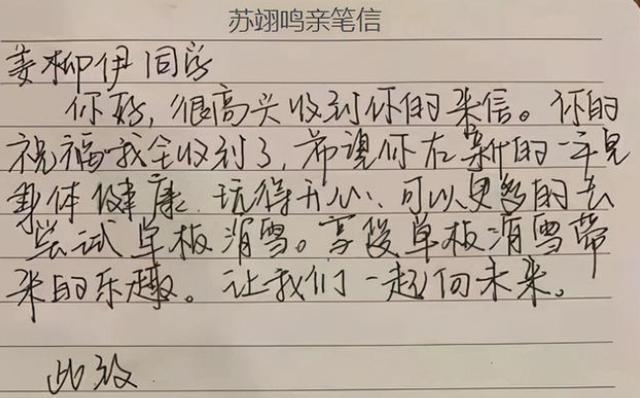 苏翊鸣亲笔信
姜柳伊同学
你好,很高兴收到你的来信。你的
祝福我全收到了,希望你在新的一年里
身体健康.玩得开心、可以更多的去
尝试单板滑雪。享受单板滑雪带
来的乐趣。让我们一起向未来。
此致